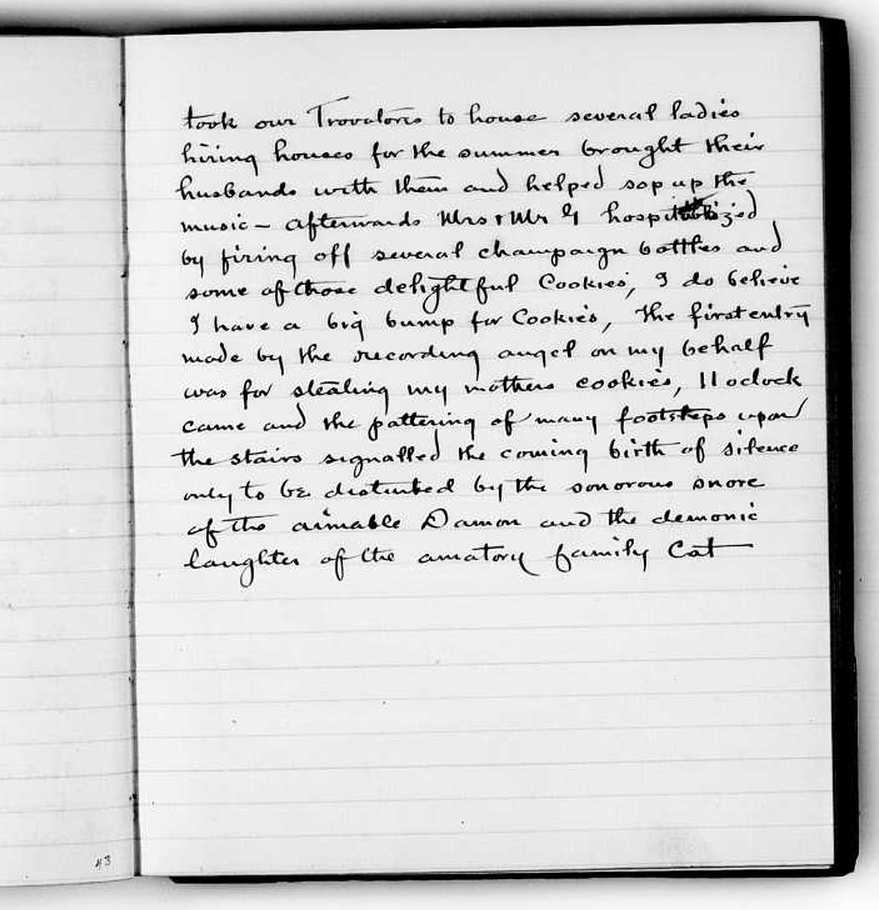 took our Trovatores to house several ladies
hiring houses for the summer brought their
husbands with them and helped sop up the
music – afterwards Mrs & Mr G hospitalized
by firing off several champaign bottles and
some of those delightful Cookies, I do believe
I have a big bump for Cookies, The first entry
made by the recording angel on my behalf
was for stealing my mothers cookies, 11 oclock
came and the pattering of many footsteps upon
the stairs signalled the coming birth of silence
only to be disturbed by the sonorous snore
of the aimable Damon and the demonic
laughter of the amatory family Cat
43